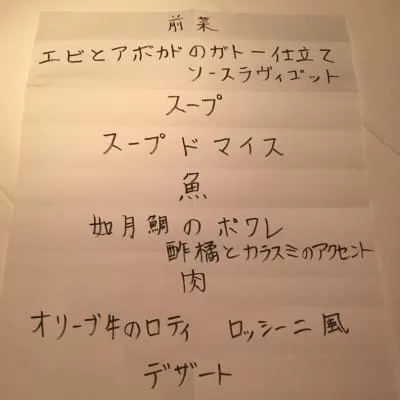 前菜
エビとアボカドのガトー仕立て
ソースラヴィゴット
スープ
スープ ド マイス
魚
如月鯛 の ポワレ
酢橘とカラスミのアクセント
肉
オリーブ牛のロティ ロッシーニ風
デザート